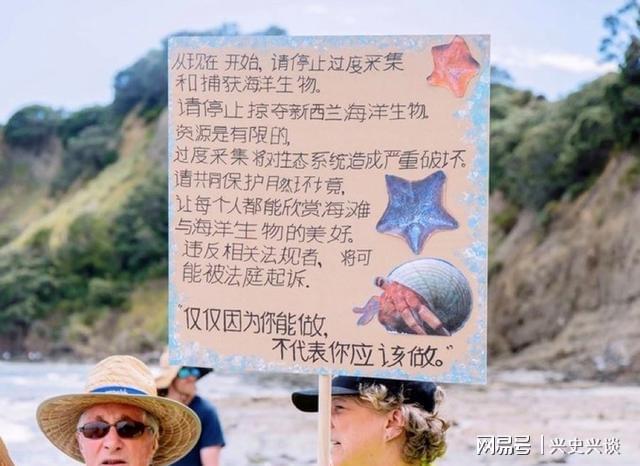 从现在 开始, 请停止过度采集
和捕获海洋生物。
请停止掠夺新西兰海洋生物。
资源是有限的,
过度采集将对生态系统造成严重破坏。
请共同保护自然环境,
让每个人都能欣赏海滩
与海洋生物的美好。
违反相关法规者、将可
能被法庭起诉.
“仅仅因为你能做,
不代表你应该做。”
网易号 | 兴史兴谈